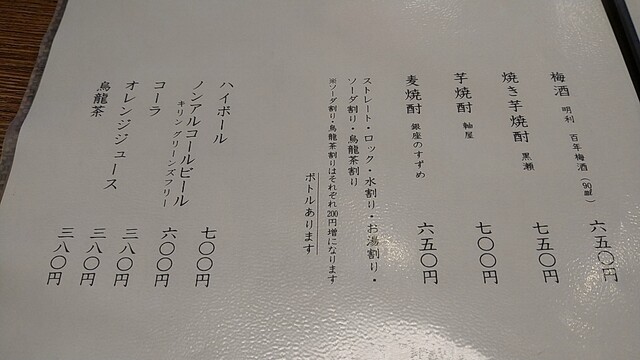 梅酒 明利 百年梅酒(90ml) 六五〇円
焼き芋焼酎 黒瀬 七五〇円
芋焼酎 軸屋 七〇〇円
麦焼酎 銀座のすずめ 六五〇円
ストレート・ロック・水割り・お湯割り・
ソーダ割り・烏龍茶割り
※ソーダ割り・烏龍茶割りはそれぞれ200円増になります
ボトルあります
ハイボール 七〇〇円
ノンアルコールビール 六〇〇円
キリン グリーンズフリー
コーラ 三八〇円
オレンジジュース 三八〇円
烏龍茶 三八〇円